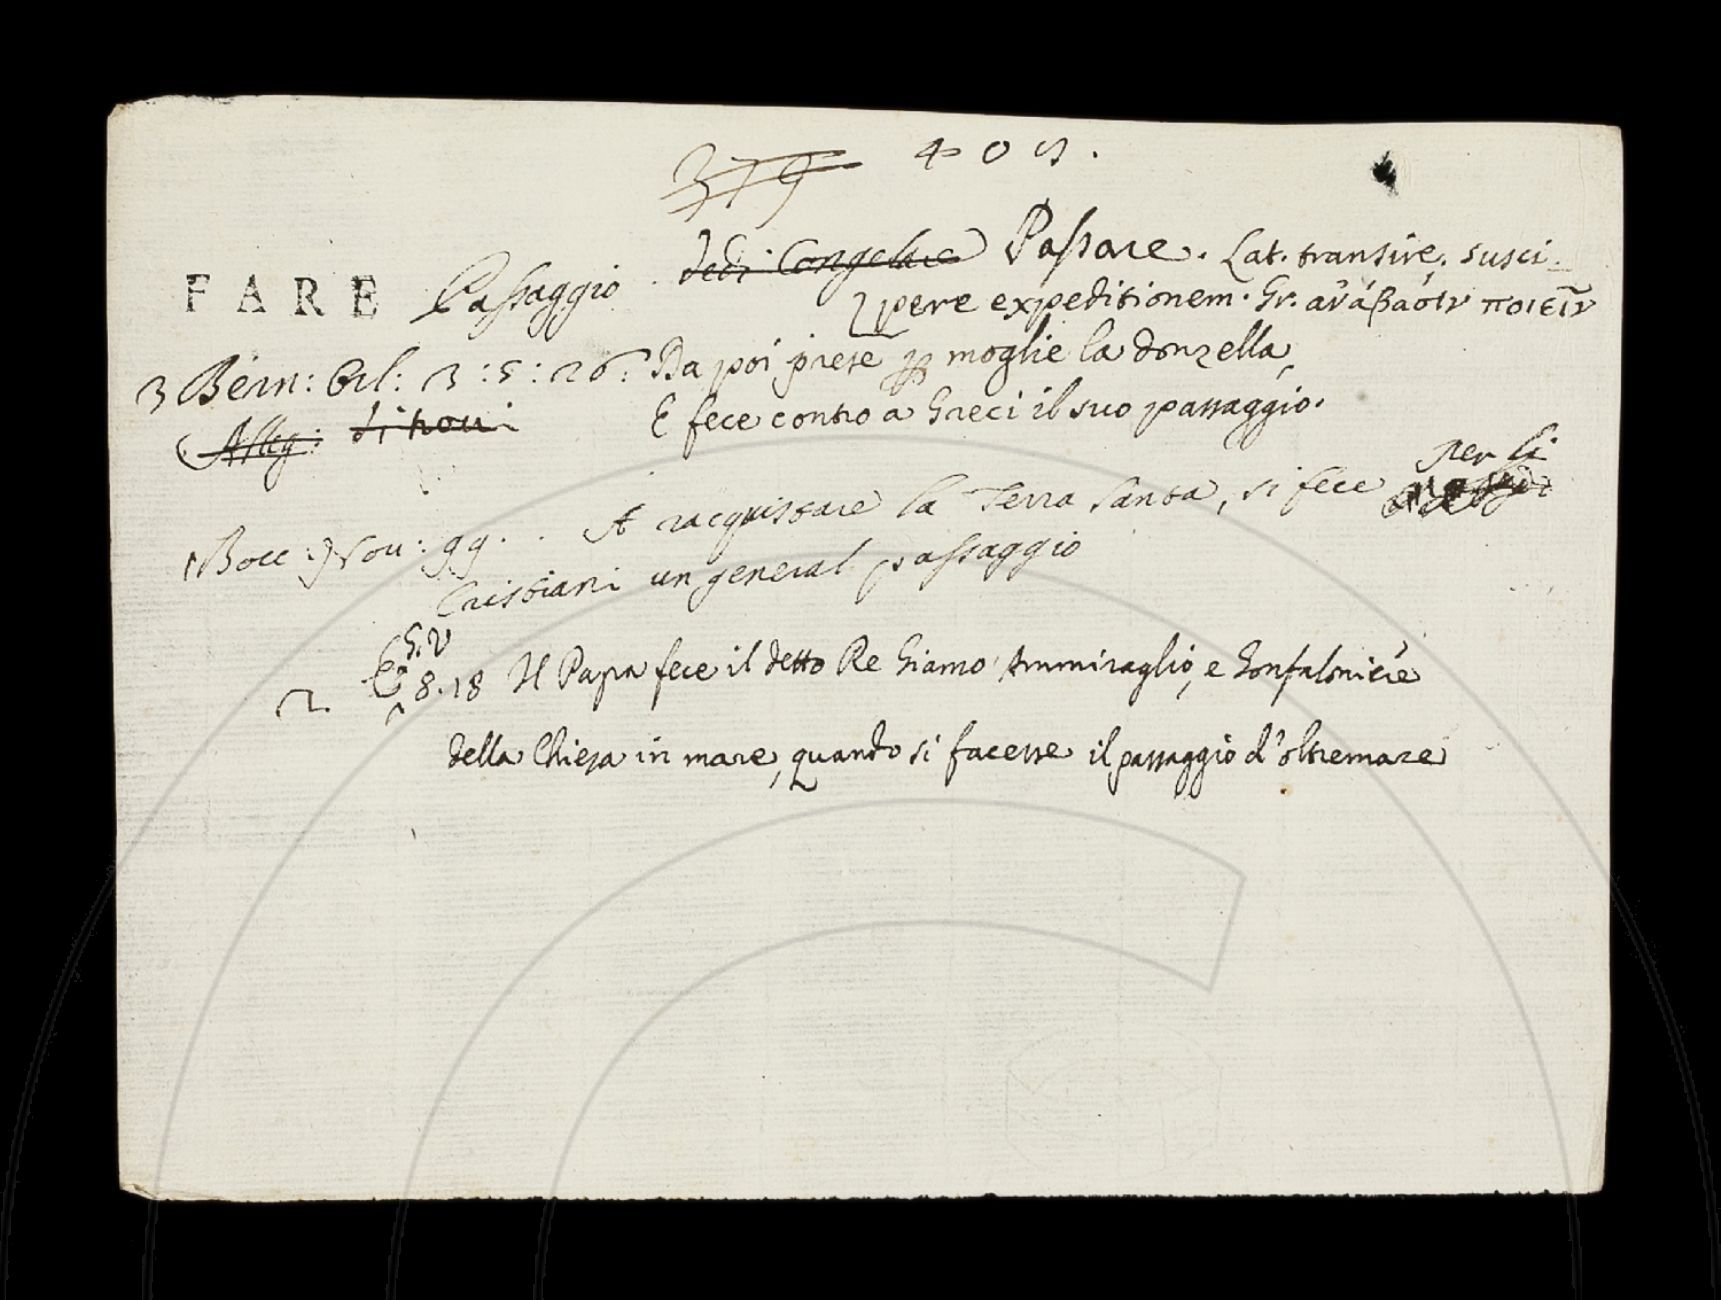 379 405.
FARE Passaggio. Passare. Lat. transire. susci-
pere expeditionem. Gr. ἀνάβασιν ποιεῖν
3 Bern: Orl: 3:5:26: Da poi prese per moglie la donzella,
E fece contro a Greci il suo passaggio.
Alleg:
1 Bocc: Nov: 99. A racquistare la Terra Santa, si fece per li
Cristiani un general passaggio
G. V
2. 8.18 Il Papa fece il detto Re Giamo Ammiraglio, e Gonfaloniere
della Chiesa in mare, quando si facesse il passaggio d'oltremare